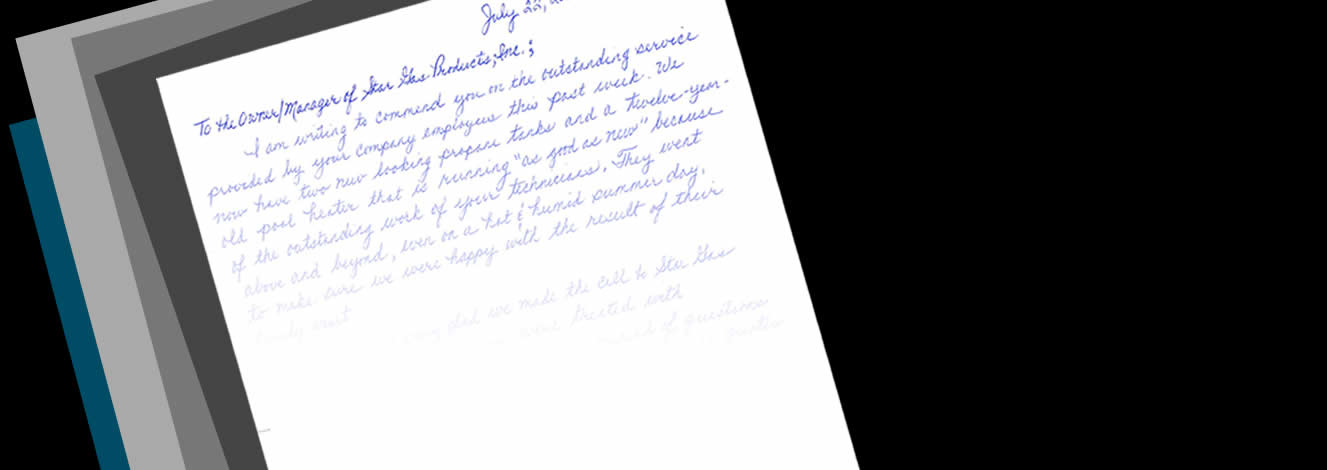 July 22,
To the Owner/Manager of Star Gas Products, Inc.;
I am writing to commend you on the outstanding service
provided by your company employees this past week. We
now have two new looking propane tanks and a twelve-year-
old pool heater that is running "as good as new" because
of the outstanding work of your technicians. They went
above and beyond, even on a hot & humid summer day,
to make sure we were happy with the result of their
timely visit
glad we made the call to Star Gas
were treated with
of questions